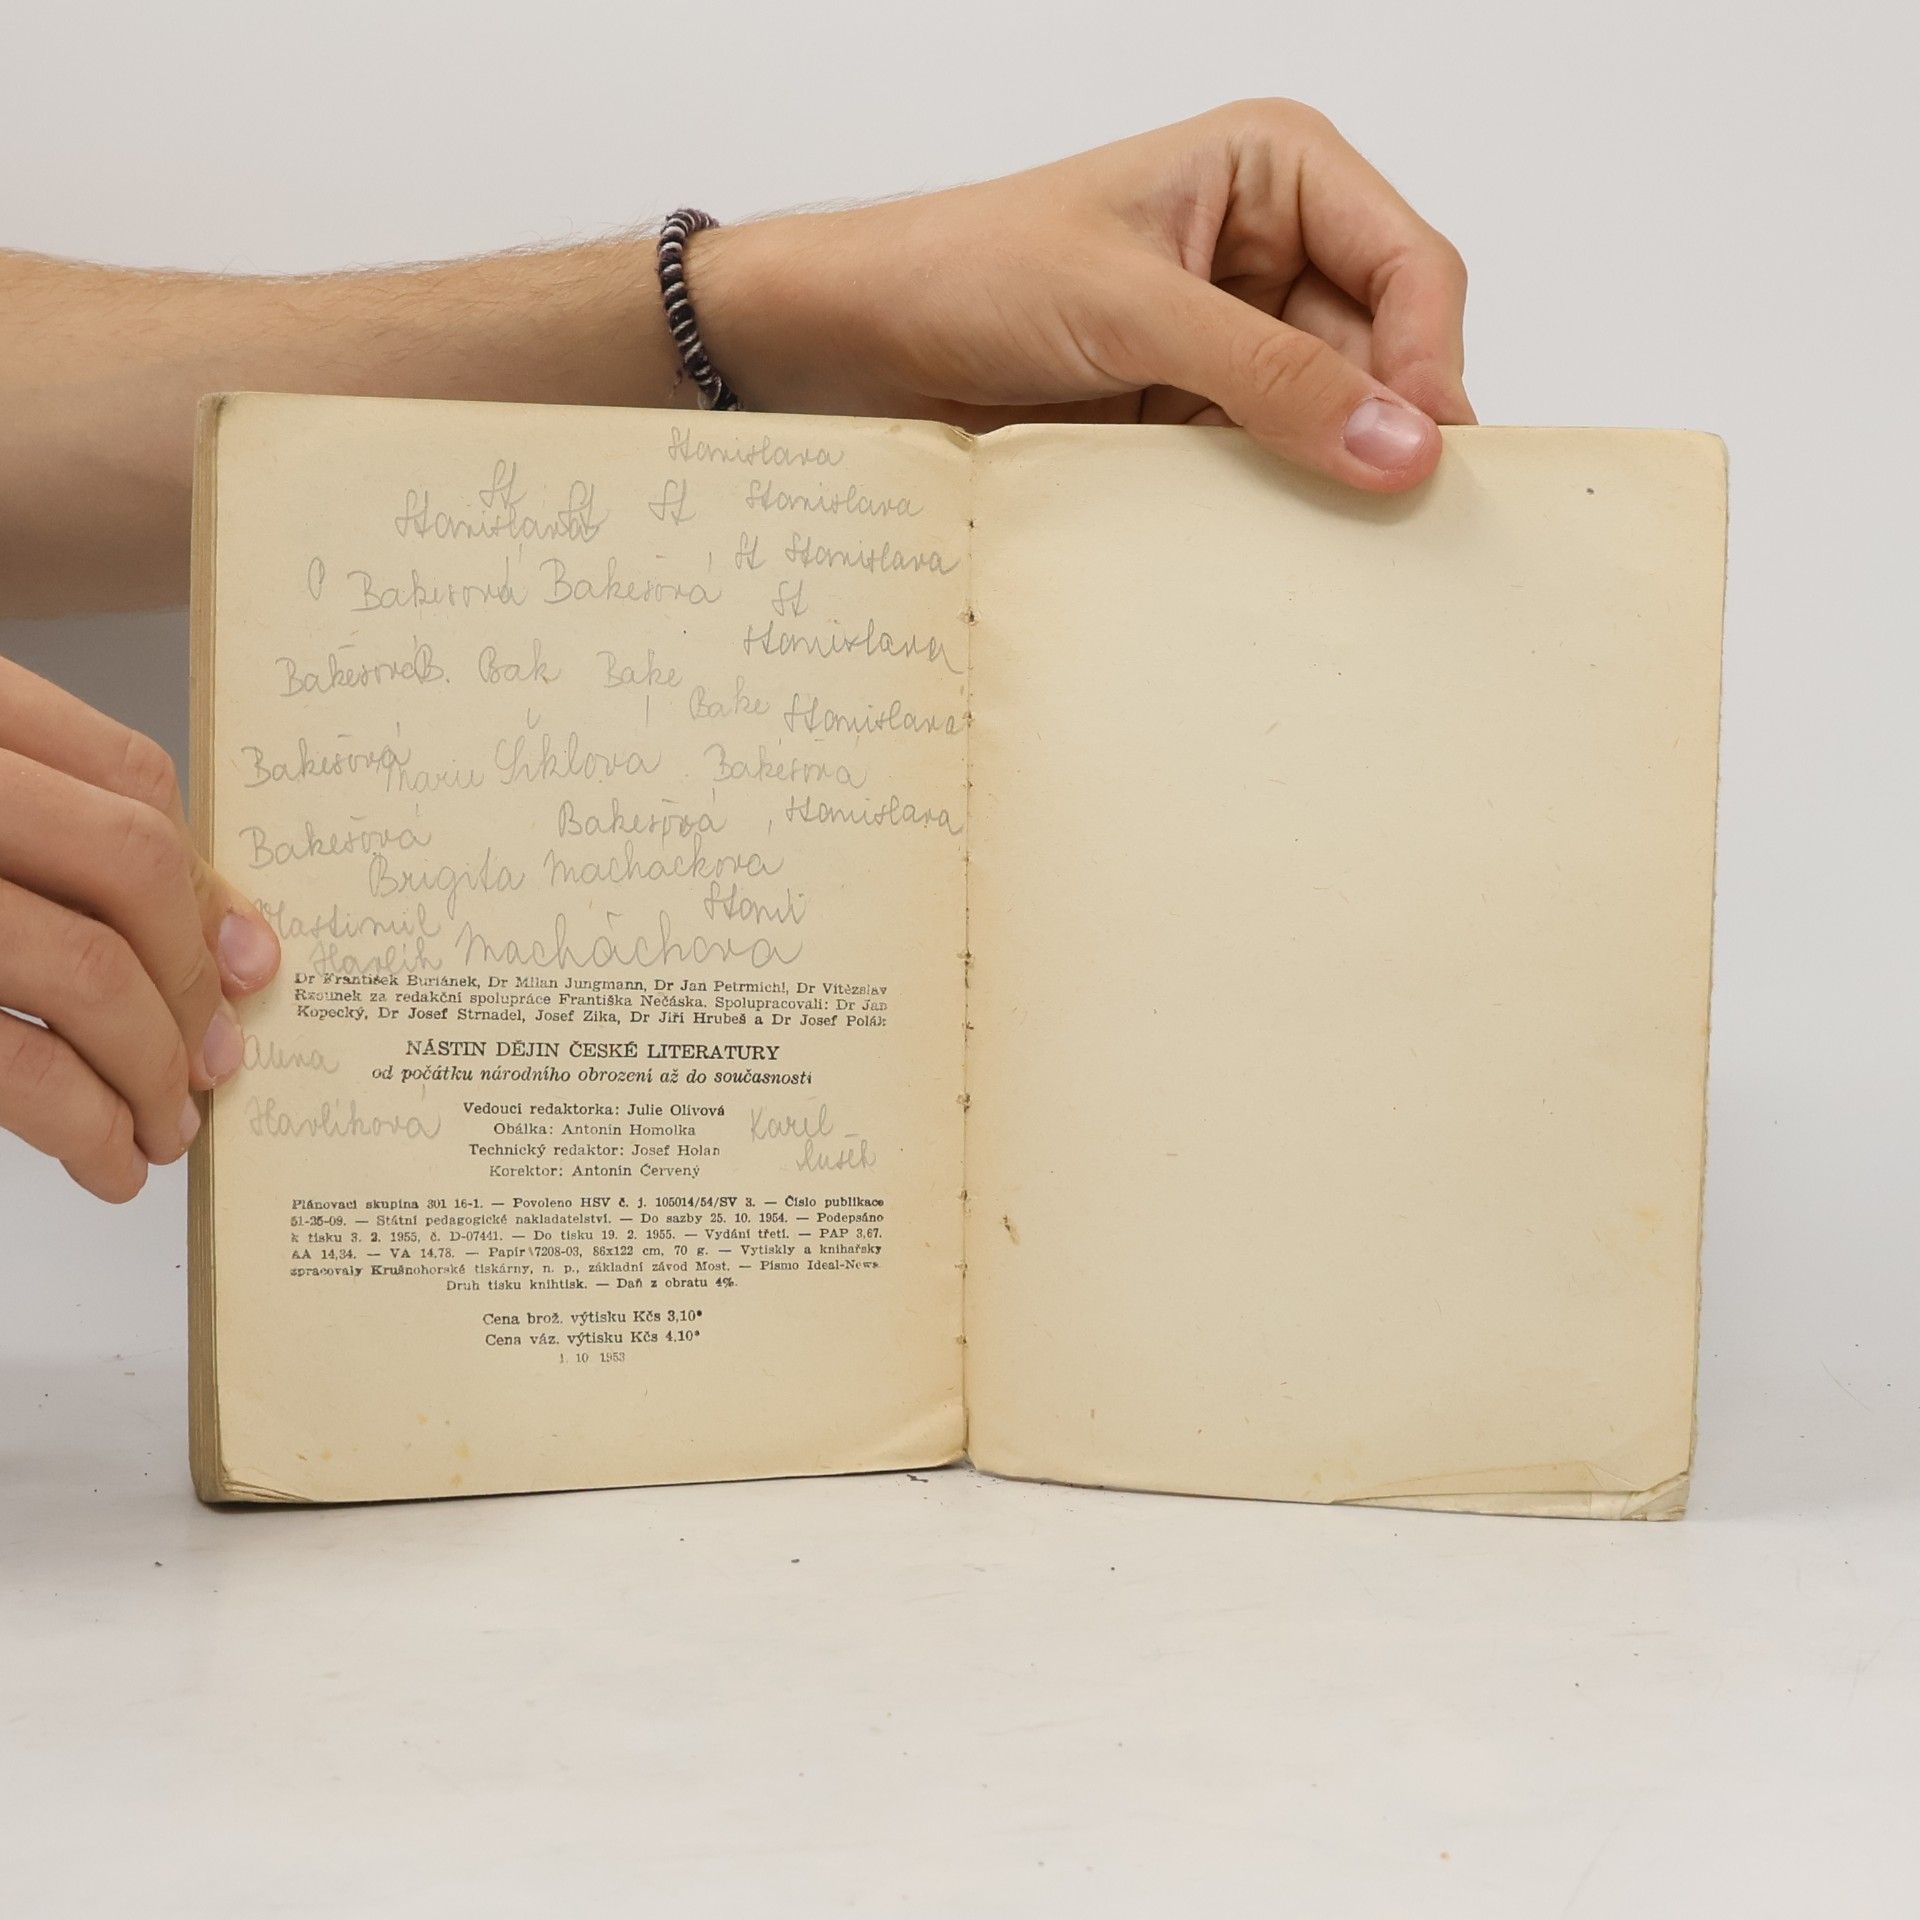 Stanislava
St
St
St
Stanislava
Stanislava
St Stanislava
Bakešová Bakešová
St
Stanislava
Bakešová B. Bak Bake
Bake Stanislava
Bakešová
Marie
Bakešová
Bakešová Stanislava
Bakešová
Brigita Macháčkova
Vlastimil
Havlík Macháčkova
Dr František Buriánek, Dr Milan Jungmann, Dr Jan Petrmichl, Dr Vítězslav
Rzounek za redakční spolupráce Františka Nečáska. Spolupracovali: Dr Jan
Kopecký, Dr Josef Strnadel, Josef Zika, Dr Jiří Hrubeš a Dr Josef Polák
NÁSTIN DĚJIN ČESKÉ LITERATURY
Alena
od počátku národního obrození až do současnosti
Vedoucí redaktorka: Julie Olivová
Havlíková
Obálka: Antonín Homolka
Karel
Technický redaktor: Josef Holan
Korektor: Antonín Červený
Plánovací skupina 301 16-1. — Povoleno HSV č. j. 105014/54/SV 3. — Číslo publikace
51-25-09. — Státní pedagogické nakladatelství. — Do sazby 25. 10. 1954. — Podepsáno
k tisku 3. 2. 1955, č. D-07441. — Do tisku 19. 2. 1955. — Vydání třetí. — PAP 3,67.
AA 14,34. — VA 14,78. — Papír 7208-03, 86x122 cm, 70 g. — Vytiskly a knihařsky
zpracovaly Krušnohorské tiskárny, n. p., základní závod Most. — Písmo Ideal-News.
Druh tisku knihtisk. — Daň z obratu 4%.
Cena brož. výtisku Kčs 3,10*
Cena váz. výtisku Kčs 4,10*
1. 10 1953